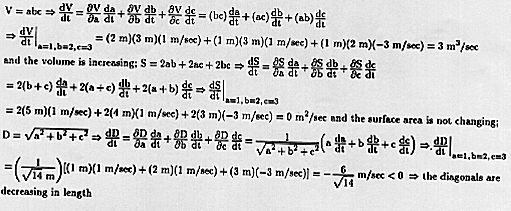 V = abc ⇒ dV/dt = ∂V/∂a da/dt + ∂V/∂b db/dt + ∂V/∂c dc/dt = (bc) da/dt + (ac) db/dt + (ab) dc/dt
⇒ dV/dt |a=1,b=2,c=3 = (2 m)(3 m)(1 m/sec) + (1 m)(3 m)(1 m/sec) + (1 m)(2 m)(-3 m/sec) = 3 m³/sec
and the volume is increasing; S = 2ab + 2ac + 2bc ⇒ dS/dt = ∂S/∂a da/dt + ∂S/∂b db/dt + ∂S/∂c dc/dt
= 2(b + c) da/dt + 2(a + c) db/dt + 2(a + b) dc/dt ⇒ dS/dt |a=1,b=2,c=3
= 2(5 m)(1 m/sec) + 2(4 m)(1 m/sec) + 2(3 m)(-3 m/sec) = 0 m²/sec and the surface area is not changing;
D = √a² + b² + c² ⇒ dD/dt = ∂D/∂a da/dt + ∂D/∂b db/dt + ∂D/∂c dc/dt = 1/√a² + b² + c² (a da/dt + b db/dt + c dc/dt) ⇒ dD/dt |a=1,b=2,c=3
= (1/√14 m)[(1 m)(1 m/sec) + (2 m)(1 m/sec) + (3 m)(-3 m/sec)] = -6/√14 m/sec < 0 ⇒ the diagonals are
decreasing in length